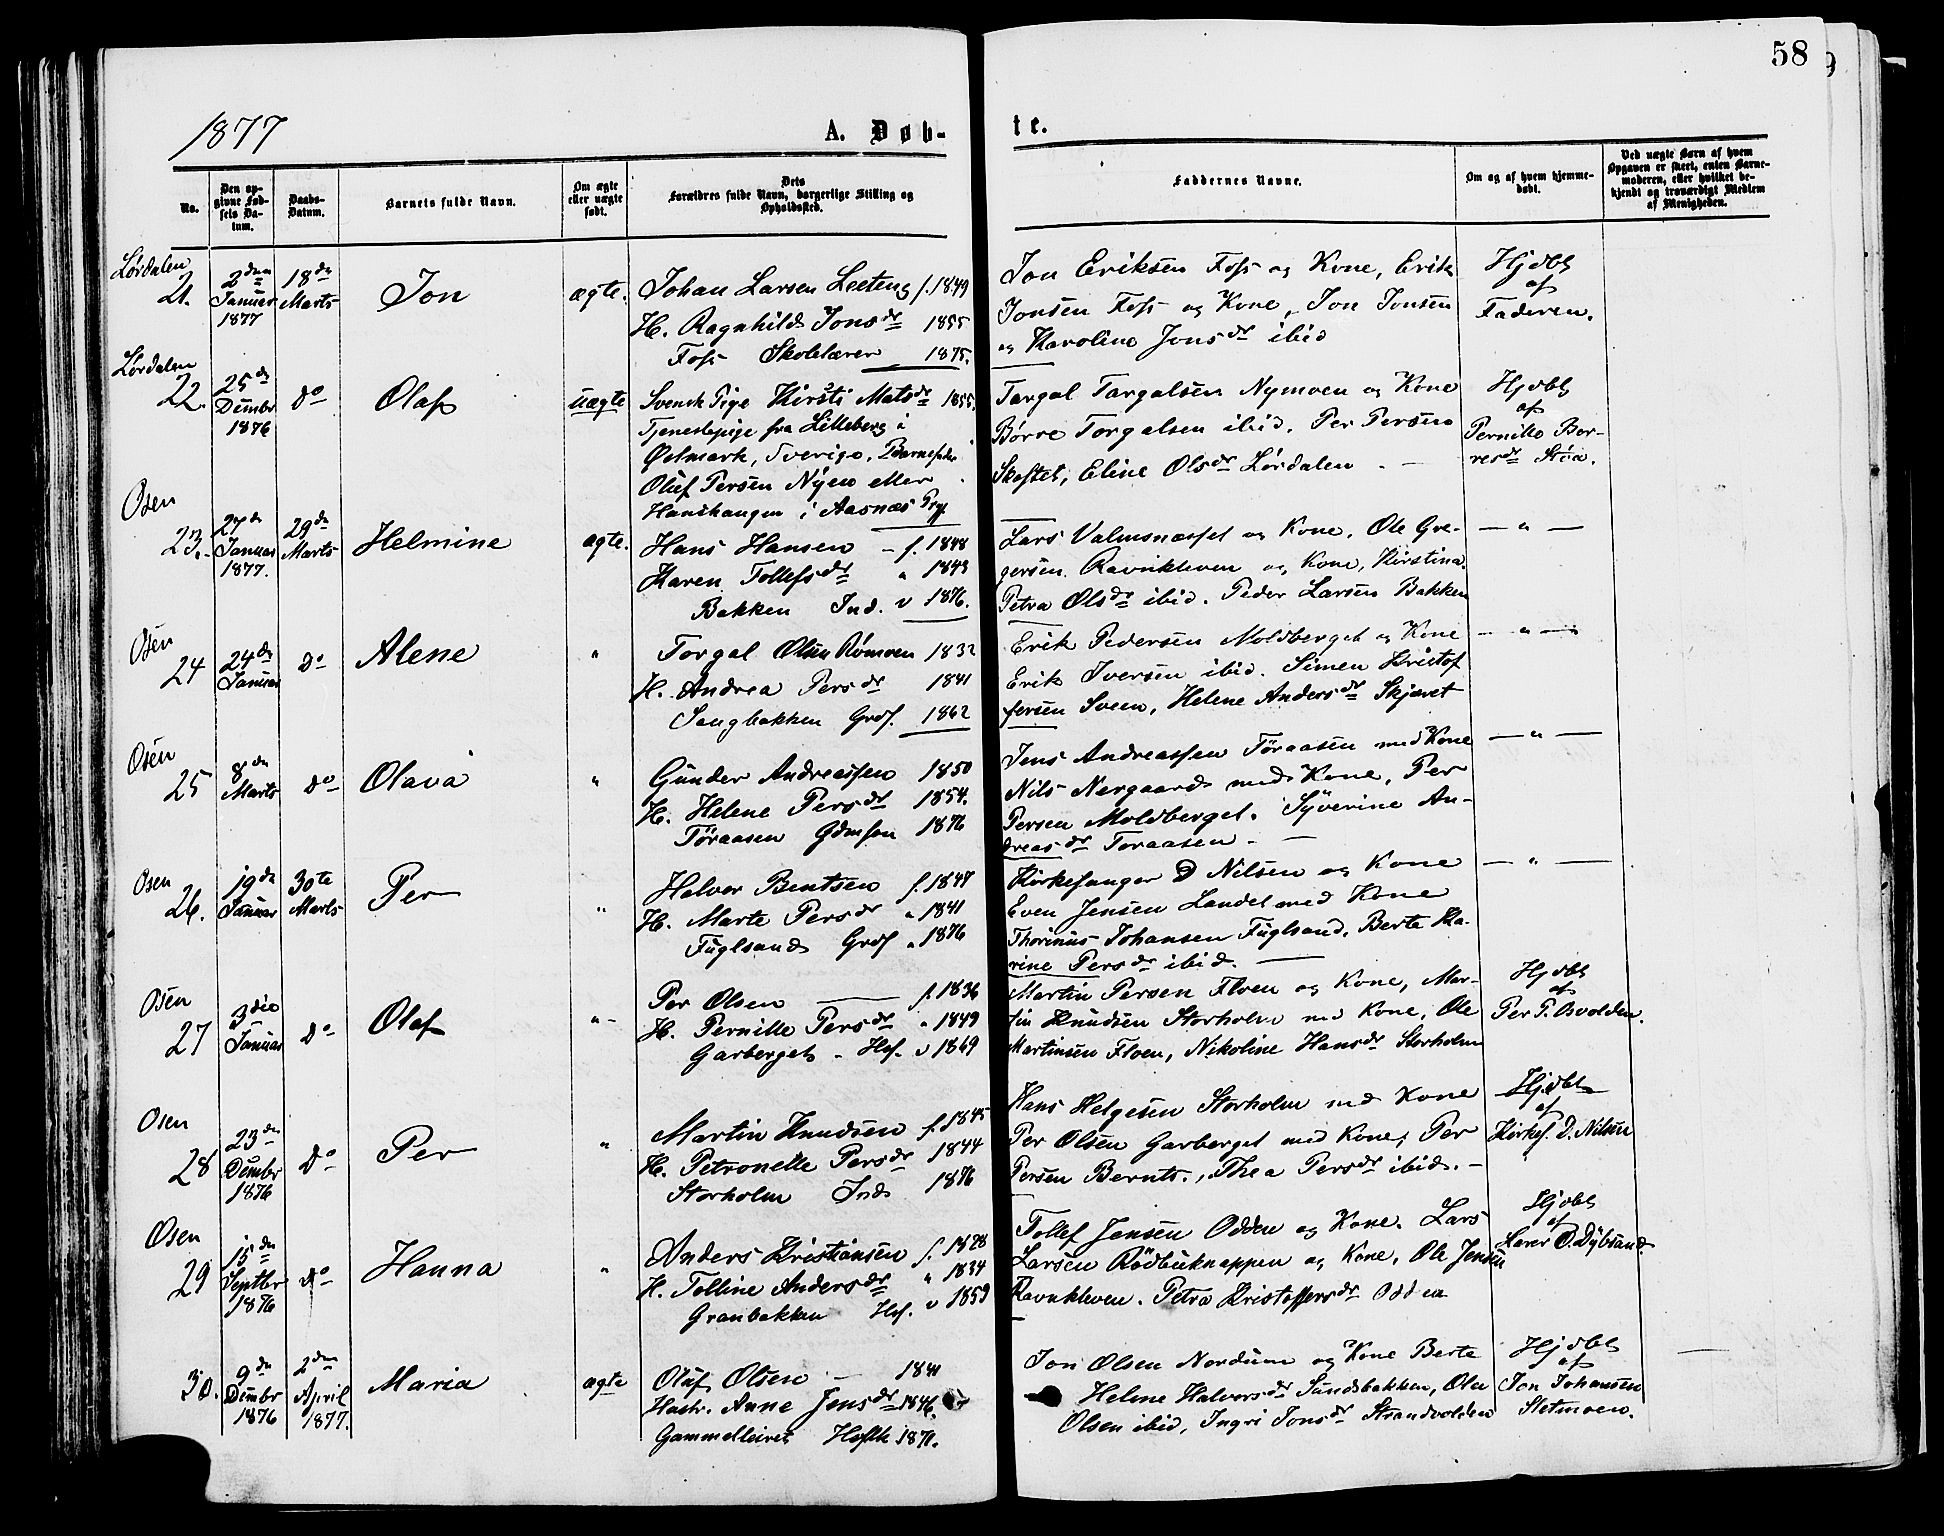 58
9
1877
A. Døb-
te.
No.
Den op-
givne Fød-
sels Da-
tum.
Daabs-
Datum.
Barnets fulde Navn.
Om ægte
eller uægte
født.
Dets
Forældres fulde Navn, borgerlige Stilling og
Opholdssted.
Faddernes Navne.
Om og af hvem hjemme-
døbt.
Ved uægte Børn af hvem
Opgaven er skeet, enten Barne-
moderen, eller hvilket be-
kjendt og troværdigt Medlem
af Menigheden.
Lørdalen
21.
2den
Januar
1877
18de
Marts
Jon
ægte.
Johan Larsen Leeteng f. 1849
H. Ragnhild Jonsdr 1855
Foss Skolelærer 1875.
Jon Eriksen Foss og Kone, Erik
Jonsen Foss og Kone, Jon Jonsen
og Karoline Jonsdr ibid
Hjdbt
af
Faderen.
Lørdalen
22.
25de
Dcmbr
1876
do
Olaf
uægte
Svensk Pige Kirsti Matsdr 1855.
Tjenestepige fra Lilleberg i
Øelmark, Sverige. Barnefader
Oluf Persen Nyen eller
Hanshaugen i Aasnæs Prg.
Targal Targalsen Nymoen og Kone
Børre Torgalsen ibid. Per Persen
Skaftet, Eline Olsdr Lørdalen -
Hjdbt
af
Pernille Bor-
resdr Støa.
Osen
23.
27de
Januar
1877.
29de
Marts
Helmine
ægte.
Hans Hansen - f. 1848
Karen Tollefsdr " 1843
Bakken Ind. v 1876.
Lars Valmsnæsset og Kone. Ole Gre-
gersen. Ravnkleven og Kone, Kirstina.
Petra Olsdr ibid. Peder Larsen Bakken
— " —
Osen
24
24de
Januar
do
Alene
"
Torgal Olsen Rømoen 1832
H. Andrea Persdr 1841
Saugbakken Grdf. 1862
Erik Pedersen Moldberget og Kone
Erik Iversen ibid. Simen Kristof
fersen Sveen, Helene Andersdr Skjæret
— " —
Osen
25
8de
Marts
do
Olava
"
Gunder Andreassen 1850
H. Helene Persdr 1854.
Tøraasen Gdmsøn 1876
Jens Andreassen Tøraasen med Kone
Nils Nergaard med Kone, Per
Persen Moldberget. Syverine An-
dreasdr Toraasen -
— " —
Osen
26.
19de
Januar
30te
Marts
Per
"
Halvor Bentsen f. 1847
H. Marte Persdr " 1841
Fuglsand Grdf " 1876
Kirkesanger D Nilsen og Kone
Even Jensen Landet med Kone
Thorinus Johansen Fuglsand. Berte Ka-
rine Persdr ibid.
— " —
Osen
27
3die
Januar
do
Olaf
" -
Per Olsen — f. 1836
H. Pernille Persdr " 1849
Garberget - Hsf. v 1869
Martin Persen Floen og Kone, Mar-
tin Knudsen Storholm med Kone, Ole
Martinsen Floen, Nikoline Hansdr Storholm
Hjdbt
af
Per P. Osvolden.
Osen
28
23de
Dcmbr
1876
do
Per
"
Martin Knudsen f. 1845
H. Petronelle Persdr 1844
Storholm Inds 1876
Hans Helgesen Storholm med Kone
Per Olsen Garberget med Kone, Per
Persen Bernts., Thea Persdr ibid. -
Hjdbt
af
Kirkes. D. Nilsen
Osen
29
15de
Septbr
1876
do
Hanna
"
Anders Kristiansen f. 1828
H. Tolline Andersdr " 1834
Granbakken Hsf. v 1859
Tollef Jensen Odden og Kone. Lars
Larsen Rødbuknappen og Kone, Ole Jensen
Ravnkleven. Petra Kristoffersdr Odden
Hjdbt
af
Larer O. Dybsand
30.
9de
Dcmbr
1876
2den
April
1877.
Maria
ægte
Oluf Olsen — 1841
Hustr. Anne Jensdr 1846.
Gammelleiret Hsflk 1871.
Jon Olsen Nordum og Kone Berte
Helene Halvorsdr Sundsbakken, Olea
Olsen ibid, Ingri Jonsdr Strandvolden
Hjdbt
af
Jon Johansen
Sletmoen.